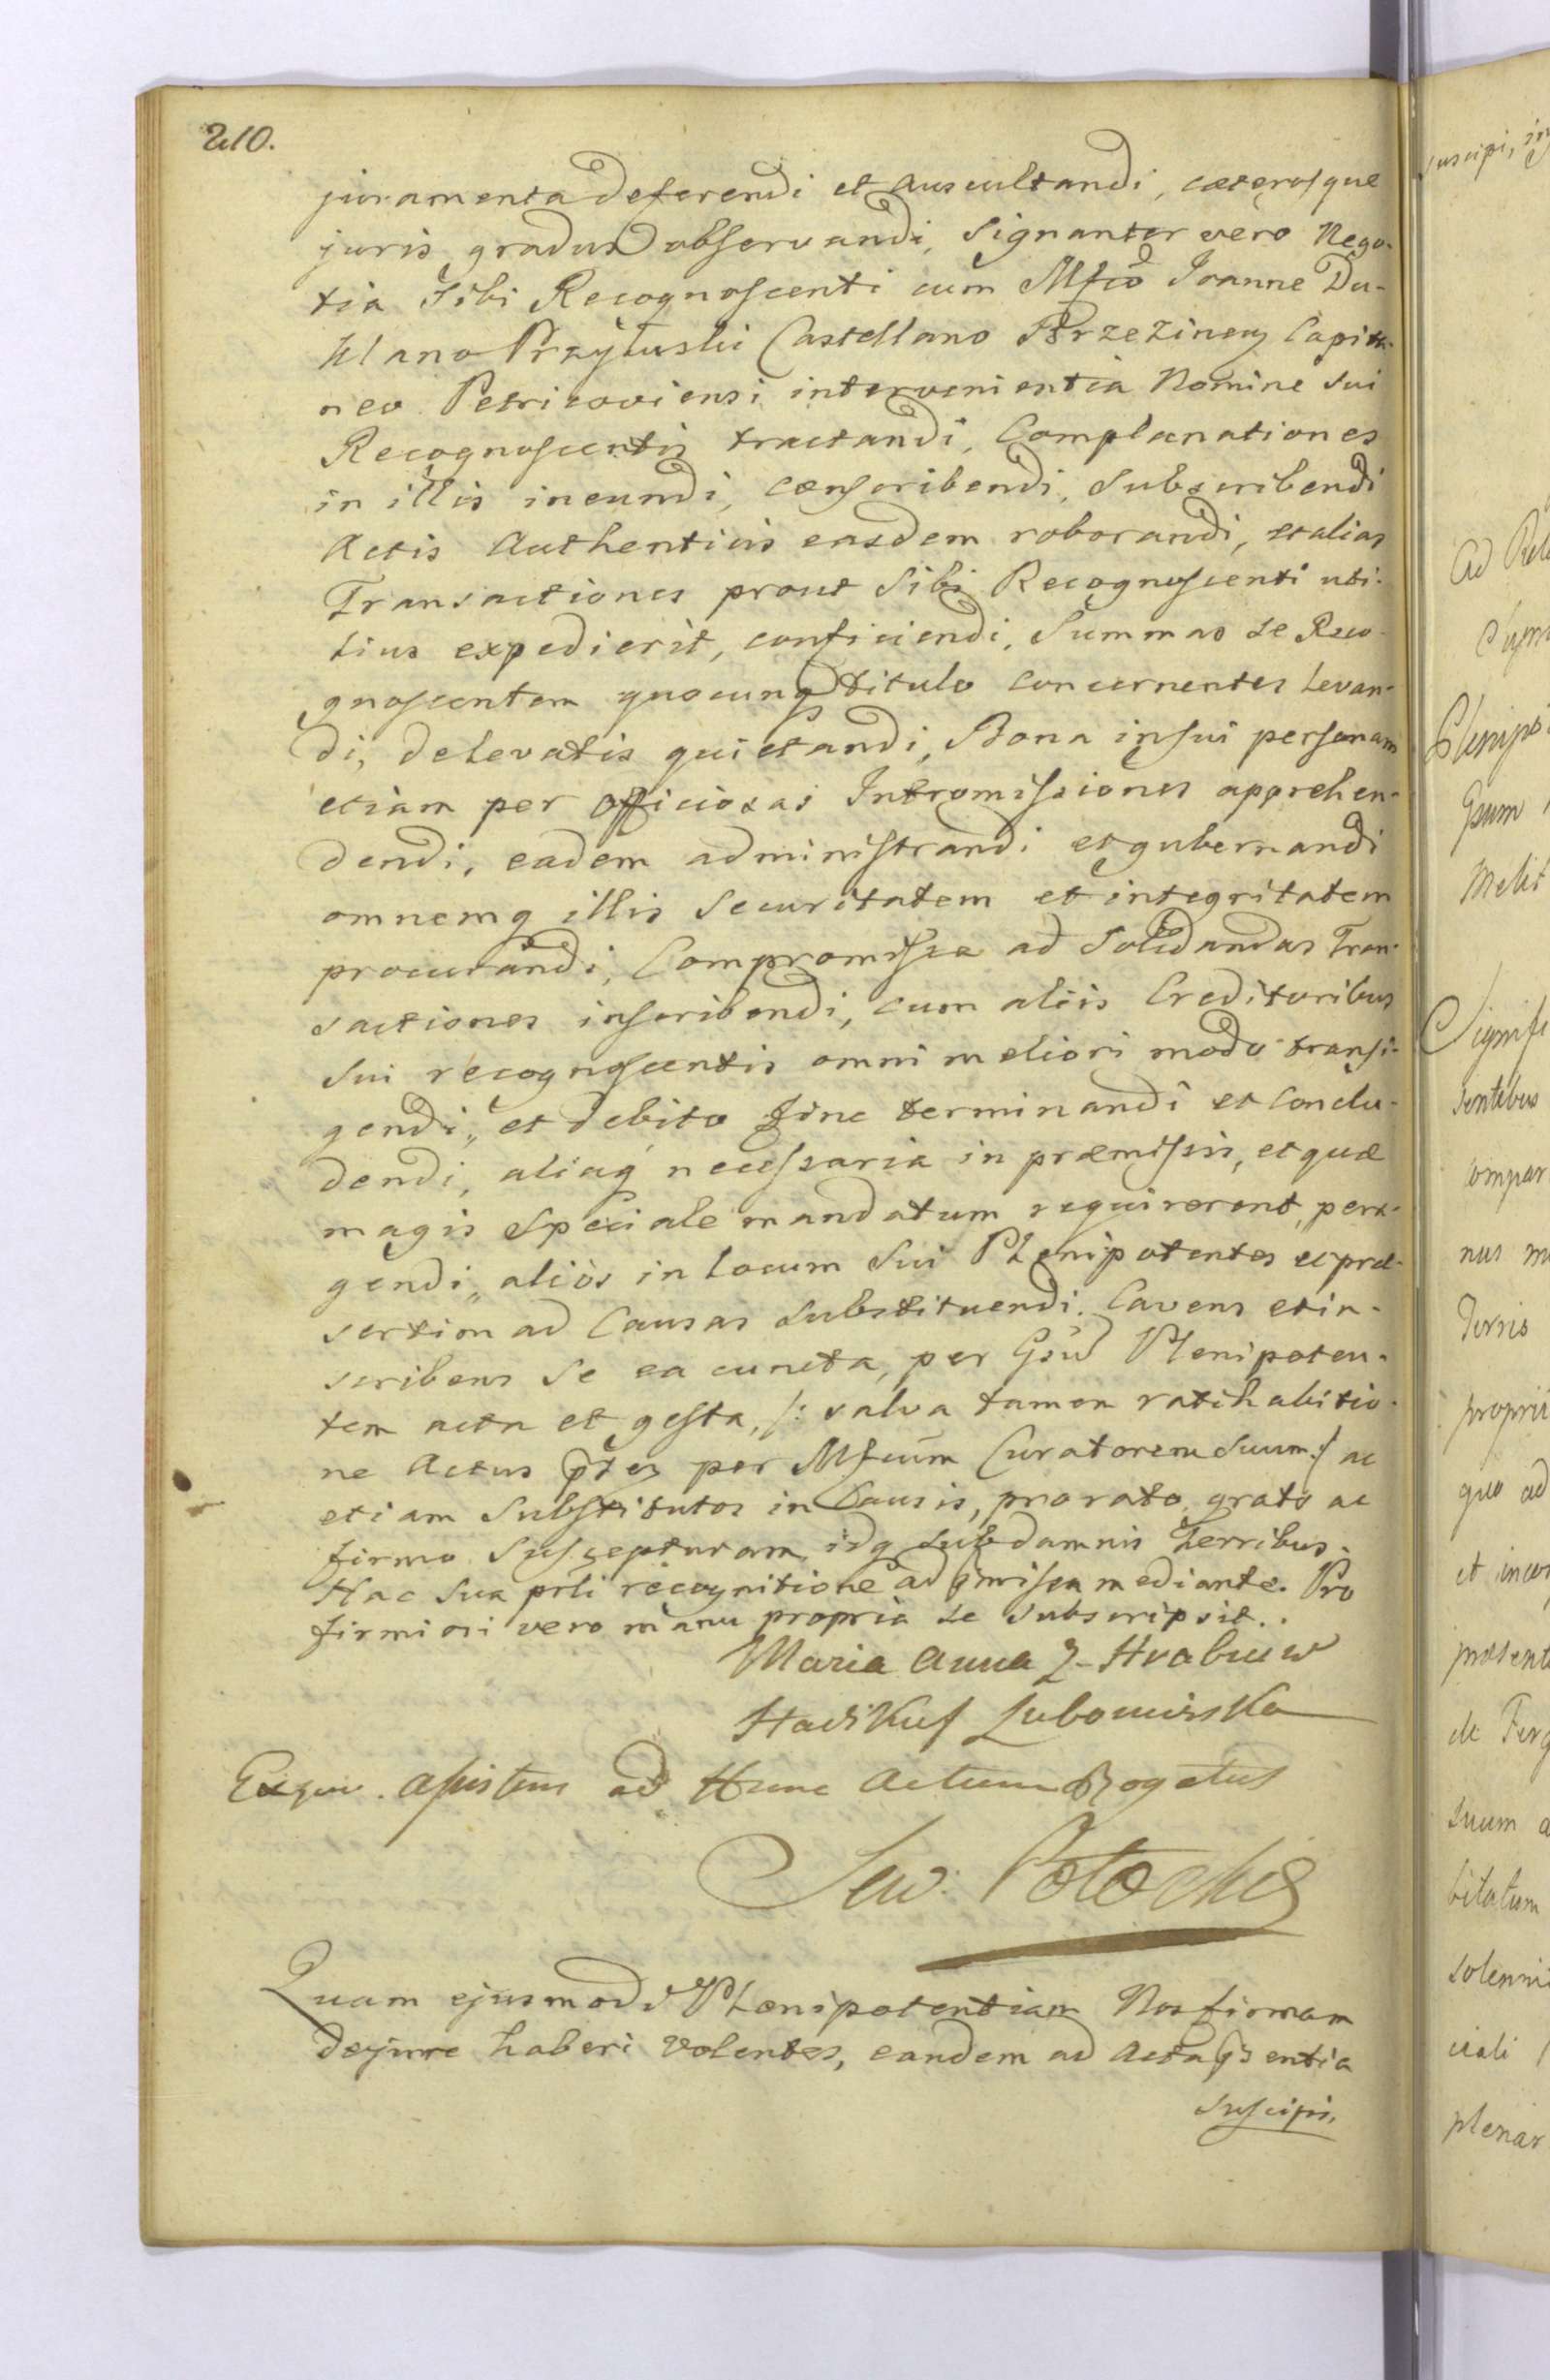 210.
juramenta deferendi et auscultandi, cæterosque
juris gradus observandi, Signanter vero Nego-
tia Sibi Recognoscenti cum Mfco Joanne Du-
klano Przyłuski Castellano Brzezinen Capita-
neo Petricoviensi intervenientia Nomine Sui
Recognoscentis tractandi, Complanationes
in illis ineundi, conscribendi, Subscribendi
Actis Authenticis easdem roborandi, et alias
Transactiones prout Sibi Recognoscenti uti-
lius expedierit, conficiendi, Summas se Reco-
gnoscentem quocunq titulo concernentes Levan-
di, de levatis quietandi, Bona in sui personam
etiam per officiosas Intromissiones apprehen-
dendi, eadem administrandi et gubernandi
omnemq illis Securitatem et integritatem
procurandi, Compromissa ad Solidandas Tran-
sactiones inscribendi, cum aliis Creditoribus
Sui recognoscentis omni meliori modo transi-
gendi, et debito fine terminandi et Conclu-
dendi, aliaq necessaria in præmissis, et quæ
magis Speciale mandatum requirerent, pera-
gendi, aliòs in Locum Sui Plenipotentes et præ-
sertim ad Causas Substituendi. Cavens et in-
scribens Se ea cuncta, per Gsū Plenipoten-
tem acta et gesta, /: salva tamen ratihabitio-
ne Actus pñtis per Mfcum Curatorem Suum :/ ac
etiam Substitutos in Causis, pro rato, grato ac
firmo Suscepturam, idq sub damnis Terribus.
Hac Sua pñti recognitione ad pmissa mediante. Pro
firmiori vero manu propria se subscripsit..
Maria Anna Z Hrabiuw
Hadikuf Lubomirska
Exquo. assistens ad Hunc Actum Rogatus
Sew: Potocki
Quam ejusmodi Plenipotentiam Nos firmam
de jure haberi volentes, eandem ad Acta pñsentia
suscipi,
suscipi,
Ad
Plenipo
Gsum
Melit
Signifi
sentibus
compar
nus
Terris
propri
quo ad
et
præsent
de
suum a
bitatum
solenni
ciali
plenar